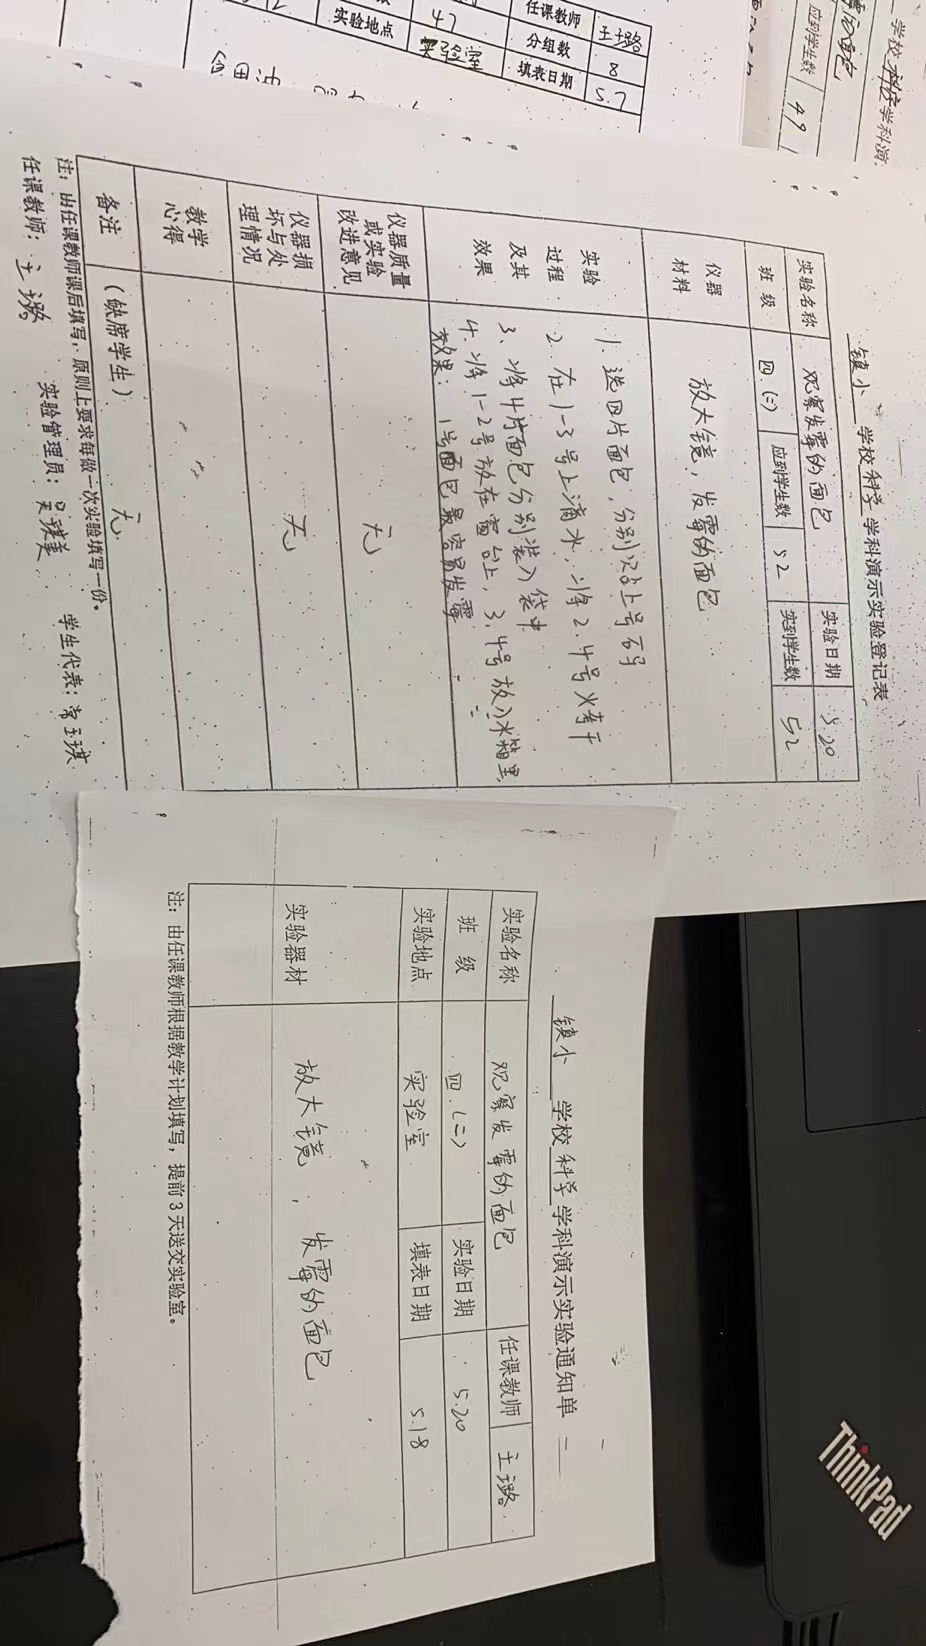 镇小 学校 科学 学科演示实验登记表
实验名称 观察发霉的面包 实验日期 5.20
班 级 四.(二) 应到学生数 52 实到学生数 52
仪器材料 放大镜，发霉的面包
实验过程及其效果
1. 选四片面包，分别贴上号码
2. 在1-3号上滴水，将2.4号烤干
3. 将4片面包分别装入袋中
4. 将1-2号放在窗台上，3.4号放入冰箱里
效果：1号面包最容易发霉
仪器质量或实验改进意见 无
仪器损坏与处理情况 无
教学心得
备注 (缺席学生) 无
注：由任课教师课后填写，原则上要求每做一次实验填写一份。
任课教师：王璐 实验管理员：吴瑛美 学生代表：常玉琪
镇小 学校 科学 学科演示实验通知单
实验名称 观察发霉的面包 任课教师 王璐
班 级 四.(二) 实验日期 5.20
实验地点 实验室 填表日期 5.18
实验器材 放大镜，发霉的面包
注：由任课教师根据教学计划填写，提前3天送交实验室。
47 任课教师 王璐
实验地点 实验室 分组数 8
填表日期 5.7
学校 科学 学科演
应到学生数 49
面包
ThinkPad